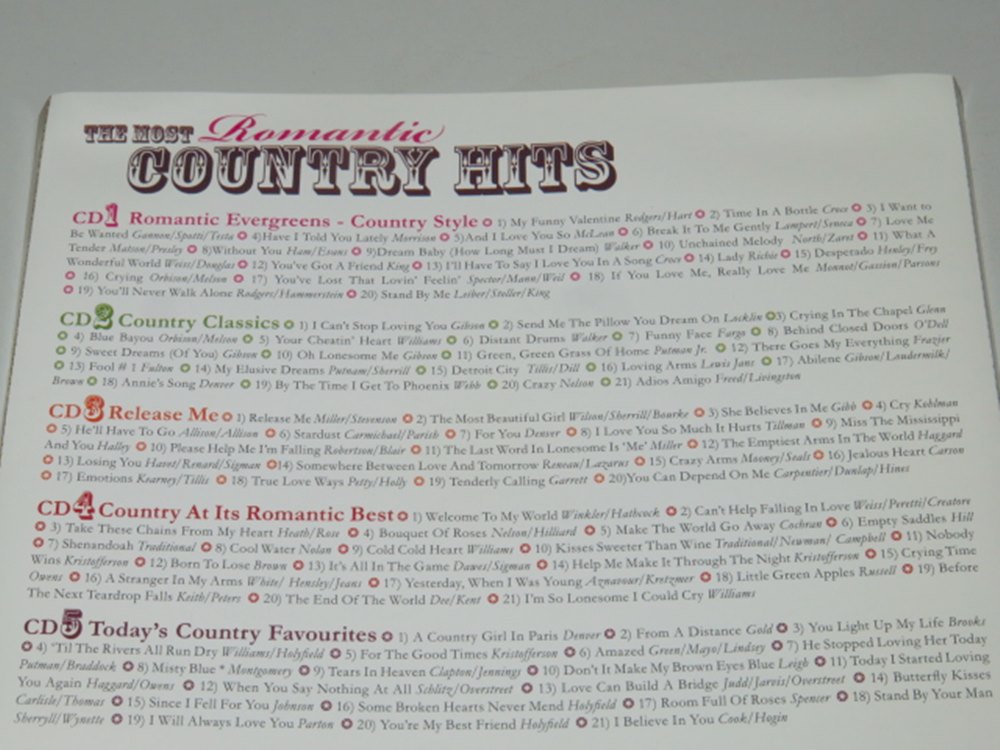 THE MOST Romantic
COUNTRY HITS
CD1 Romantic Evergreens - Country Style ✪ 1) My Funny Valentine Rodgers/Hart ✪ 2) Time In A Bottle Croce ✪ 3) I Want to
Be Wanted Gannon/Spotti/Testa ✪ 4)Have I Told You Lately Morrison ✪ 5)And I Love You So McLean ✪ 6) Break It To Me Gently Lampert/Seneca ✪ 7) Love Me
Tender Matson/Presley ✪ 8)Without You Ham/Evans ✪ 9)Dream Baby (How Long Must I Dream) Walker ✪ 10) Unchained Melody North/Zaret ✪ 11) What A
Wonderful World Weiss/Douglas ✪ 12) You've Got A Friend King ✪ 13) I'll Have To Say I Love You In A Song Croce ✪ 14) Lady Richie ✪ 15) Desperado Henley/Frey
✪ 16) Crying Orbison/Melson ✪ 17) You've Lost That Lovin' Feelin' Spector/Mann/Weil ✪ 18) If You Love Me, Really Love Me Monnot/Gassion/Parsons
✪ 19) You'll Never Walk Alone Rodgers/Hammerstein ✪ 20) Stand By Me Leiber/Stoller/King
CD2 Country Classics ✪ 1) I Can't Stop Loving You Gibson ✪ 2) Send Me The Pillow You Dream On Locklin ✪3) Crying In The Chapel Glenn
✪ 4) Blue Bayou Orbison/Melson ✪ 5) Your Cheatin' Heart Williams ✪ 6) Distant Drums Walker ✪ 7) Funny Face Fargo ✪ 8) Behind Closed Doors O'Dell
✪ 9) Sweet Dreams (Of You) Gibson ✪ 10) Oh Lonesome Me Gibson ✪ 11) Green, Green Grass Of Home Putman Jr. ✪ 12) There Goes My Everything Frazier
✪ 13) Fool # 1 Fulton ✪ 14) My Elusive Dreams Putnam/Sherrill ✪ 15) Detroit City Tillis/Dill ✪ 16) Loving Arms Lewis Jans ✪ 17) Abilene Gibson/Loudermilk/
Brown ✪ 18) Annie's Song Denver ✪ 19) By The Time I Get To Phoenix Webb ✪ 20) Crazy Nelson ✪ 21) Adios Amigo Freed/Livingston
CD3 Release Me ✪ 1) Release Me Miller/Stevenson ✪ 2) The Most Beautiful Girl Wilson/Sherrill/Bourke ✪ 3) She Believes In Me Gibb ✪ 4) Cry Kohlman
✪ 5) He'll Have To Go Allison/Allison ✪ 6) Stardust Carmichael/Parish ✪ 7) For You Denver ✪ 8) I Love You So Much It Hurts Tillman ✪ 9) Miss The Mississippi
And You Halley ✪ 10) Please Help Me I'm Falling Robertson/Blair ✪ 11) The Last Word In Lonesome Is 'Me' Miller ✪ 12) The Emptiest Arms In The World Haggard
✪ 13) Losing You Havet/Renard/Sigman ✪14) Somewhere Between Love And Tomorrow Reneau/Lazarus ✪ 15) Crazy Arms Mooney/Seals ✪ 16) Jealous Heart Carson
✪ 17) Emotions Kearney/Tillis ✪ 18) True Love Ways Petty/Holly ✪ 19) Tenderly Calling Garrett ✪ 20)You Can Depend On Me Carpentier/Dunlap/Hines
CD4 Country At Its Romantic Best ✪ 1) Welcome To My World Winkler/Hathcock ✪ 2) Can't Help Falling In Love Weiss/Peretti/Creatore
✪ 3) Take These Chains From My Heart Heath/Rose ✪ 4) Bouquet Of Roses Nelson/Hilliard ✪ 5) Make The World Go Away Cochran ✪ 6) Empty Saddles Hill
✪ 7) Shenandoah Traditional ✪ 8) Cool Water Nolan ✪ 9) Cold Cold Heart Williams ✪ 10) Kisses Sweeter Than Wine Traditional/Newman/ Campbell ✪ 11) Nobody
Wins Kristofferson ✪ 12) Born To Lose Brown ✪ 13) It's All In The Game Dawes/Sigman ✪ 14) Help Me Make It Through The Night Kristofferson ✪ 15) Crying Time
Owens ✪ 16) A Stranger In My Arms White/ Hensley/Jeans ✪ 17) Yesterday, When I Was Young Aznavour/Kretzmer ✪ 18) Little Green Apples Russell ✪ 19) Before
The Next Teardrop Falls Keith/Peters ✪ 20) The End Of The World Dee/Kent ✪ 21) I'm So Lonesome I Could Cry Williams
CD5 Today's Country Favourites ✪ 1) A Country Girl In Paris Denver ✪ 2) From A Distance Gold ✪ 3) You Light Up My Life Brooks
✪ 4) 'Til The Rivers All Run Dry Williams/Holyfield ✪ 5) For The Good Times Kristofferson ✪ 6) Amazed Green/Mayo/Lindsey ✪ 7) He Stopped Loving Her Today
Putman/Braddock ✪ 8) Misty Blue * Montgomery ✪ 9) Tears In Heaven Clapton/Jennings ✪ 10) Don't It Make My Brown Eyes Blue Leigh ✪ 11) Today I Started Loving
You Again Haggard/Owens ✪ 12) When You Say Nothing At All Schlitz/Overstreet ✪ 13) Love Can Build A Bridge Judd/Jarvis/Overstreet ✪ 14) Butterfly Kisses
Carlisle/Thomas ✪ 15) Since I Fell For You Johnson ✪ 16) Some Broken Hearts Never Mend Holyfield ✪ 17) Room Full Of Roses Spencer ✪ 18) Stand By Your Man
Sherryll/Wynette ✪ 19) I Will Always Love You Parton ✪ 20) You're My Best Friend Holyfield ✪ 21) I Believe In You Cook/Hogin